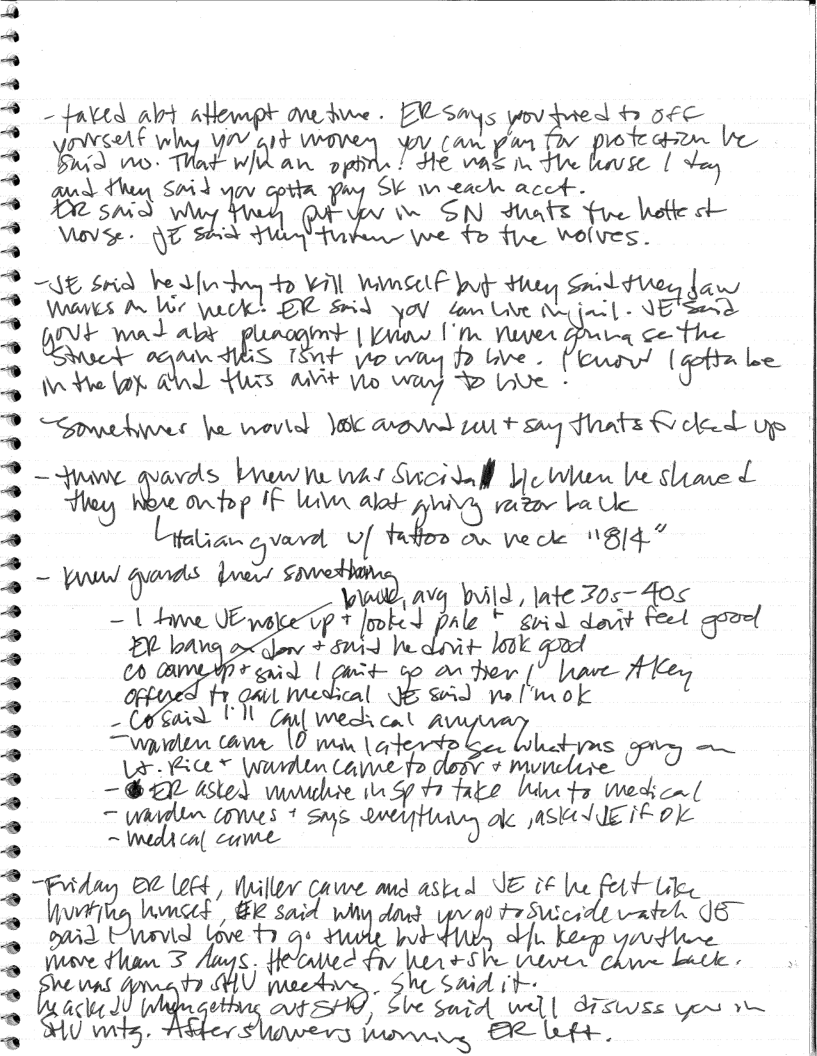 - talked abt attempt one time. ER says you tried to off
yourself why you got money you can pay for protection he
said no. That w/n an option. He was in the house 1 day
and they said you gotta pay 5k in each acct.
ER said why they put you in SN thats the hottest
house. JE said they threw me to the wolves.
- JE said he d/n try to kill himself but they said they saw
marks on his neck. ER said you can live in jail. JE said
govt mad abt pleaagmt I know I'm never gonna se the
street again this isnt no way to live. I know I gotta be
in the box and this ain't no way to live.
- Sometimes he would look around cell + say thats fucked up
- think guards knew he was suicidal b/c when he shaved
they were on top of him abt giving razor back
Italian guard w/ tattoo on neck "814"
- knew guards knew something
black, avg build, late 30s-40s
- 1 time JE woke up + looked pale + said don't feel good
ER bang on door + said he don't look good
CO came up + said I can't go on tier / have A key
offered to call medical JE said no I'm ok
- CO said I'll call medical anyway
- warden came 10 min later to see what was going on
Lt. Rice + warden came to door + munchie
- ER asked munchie in Sp to take him to medical
- warden comes + says everything ok, asked JE if ok
- medical came
- Friday ER left, Miller came and asked JE if he felt like
hurting himself, ER said why dont you go to suicide watch JE
said I would love to go there but they d/n keep you there
more than 3 days. He called for her + she never came back.
She was going to SHU meeting. She said it.
he asked when getting out SHU, she said we'll discuss you in
SHU mtg. After showers morning ER left.